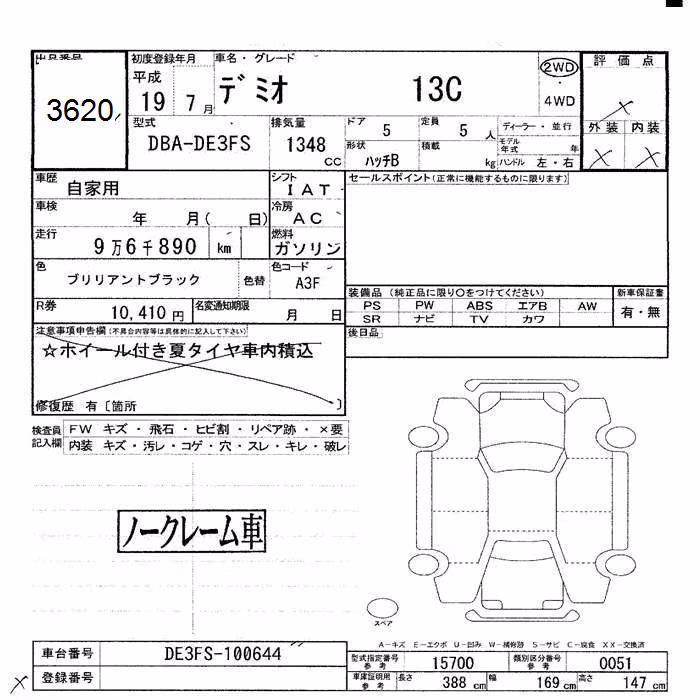 出品番号
3620
初度登録年月
平成
19 7月
車名・グレード
デミオ 13C
2WD
4WD
評価点
外装 内装
型式
DBA-DE3FS
排気量
1348
CC
ドア
5
定員
5 人
形状
ハッチB
積載
kg
ディーラー・並行
モデル年式 年
ハンドル 左・右
車歴
自家用
シフト
IAT
セールスポイント(正常に機能するものに限ります)
車検
年 月( 日)
冷房
AC
走行
9万6千890 km
燃料
ガソリン
色
ブリリアントブラック
色替
色コード
A3F
装備品(純正品に限り○をつけてください)
新車保証書
PS PW ABS エアB AW
SR ナビ TV カワ
有・無
R券
10,410円
名変通知期限
月 日
後日品
注意事項申告欄(不具合内容等は具体的に記入して下さい)
☆ホイール付き夏タイヤ車内積込
修復歴 有〔箇所 〕
検査員記入欄
FW キズ・飛石・ヒビ割・リペア跡・×要
内装 キズ・汚レ・コゲ・穴・スレ・キレ・破レ
ノークレーム車
スペア
A-キズ E-エクボ U-凹み W-補修跡 S-サビ C-腐食 XX-交換済
車台番号
DE3FS-100644
登録番号
型式指定番号 参考
15700
類別区分番号 参考
0051
車庫証明用 参考
長さ 388 cm 幅 169 cm 高さ 147 cm